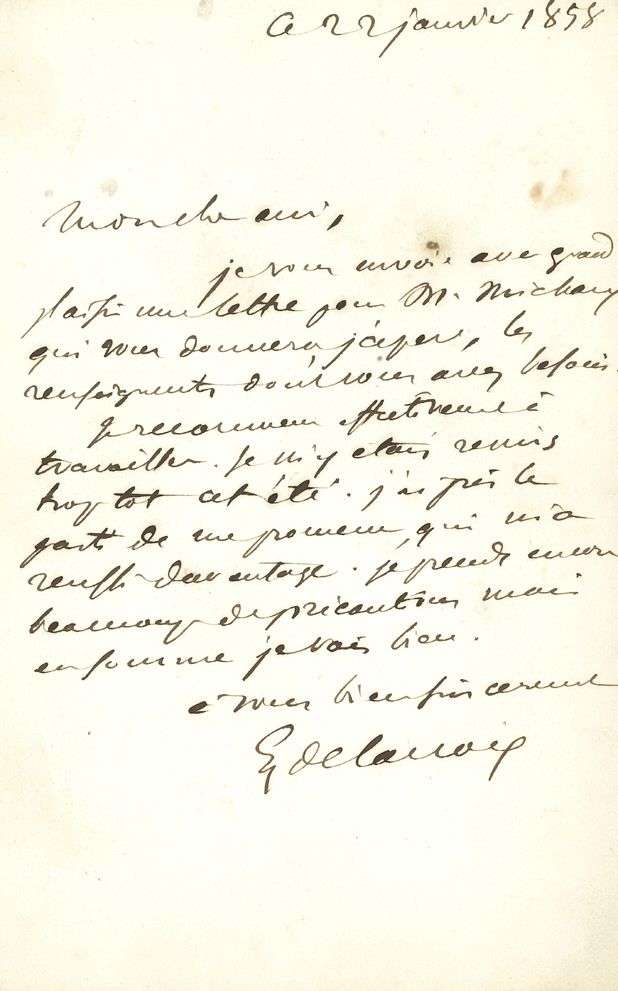 Ce 22 janvier 1858
Mon cher ami,
je vous envoie avec grand
plaisir une lettre pour M. Michaux
qui vous donnera j'espère, les
renseignements dont vous avez besoin.
Je recommence effectivement à
travailler. Je m'y étais remis
trop tot cet été. j'ai pris le
parti de me promener qui m'a
reussi davantage. je prends encore
beaucoup de précautions mais
en somme je vais bien.
à vous bien sincerement
Eg Delacroix